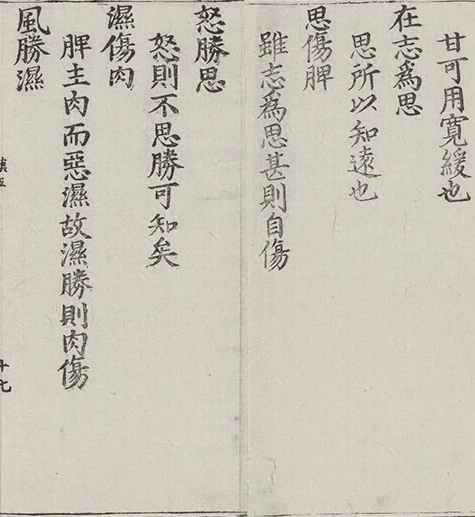 甘可用寬緩也
在志爲思
思所以知遠也
思傷脾
雖志爲思甚則自傷
怒勝思
怒則不思勝可知矣
濕傷肉
脾主肉而惡濕故濕勝則肉傷
風勝濕
十七